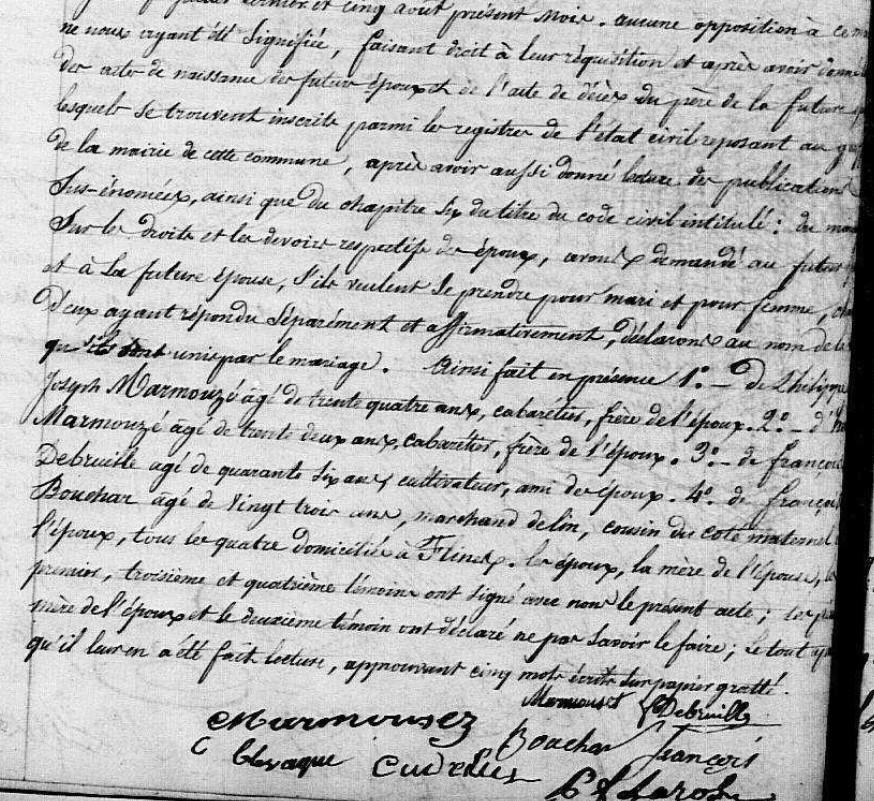 dernier et cinq août présent mois. aucune opposition à ce
ne nous ayant été signifiée, faisant droit à leur réquisition et après avoir donné
des actes de naissance des futurs époux et de l'acte de décès du père de la future
lesquels se trouvent inscrits parmi les registres de l'état civil reposant au
de la mairie de cette commune, après avoir aussi donné lecture des publications
sus-énoncées, ainsi que du chapitre six du titre du code civil intitulé : du
Sur les droits et les devoirs respectifs des époux, avons demandé au futur
et à la future épouse, s'ils veulent se prendre pour mari et pour femme,
d'eux ayant répondu séparément et affirmativement, déclarons au nom de la
qu'ils sont unis par le mariage. Ainsi fait en présence 1° - de Philippe
Joseph Marmouzé âgé de trente quatre ans, cabarétier, frère de l'époux. 2° -
Marmouzé âgé de trente deux ans, cabarétier, frère de l'époux. 3° - de françois
Debruille agé de quarante six ans cultivateur, ami des époux. 4° de françois
Bouchar âgé de vingt trois ans, marchand de lin, cousin du coté maternel
l'époux, tous les quatre domiciliés à Flines. les époux, la mère de l'épouse,
premier, troisième et quatrième témoins ont signé avec nous le présent acte ;
mère de l'époux et le deuxième témoin ont déclaré ne pas savoir le faire ; le tout
qu'il leur en a été fait lecture, approuvant cinq mots écrits sur papier gratté.
Debruille
Marmousez
Bouchar françois